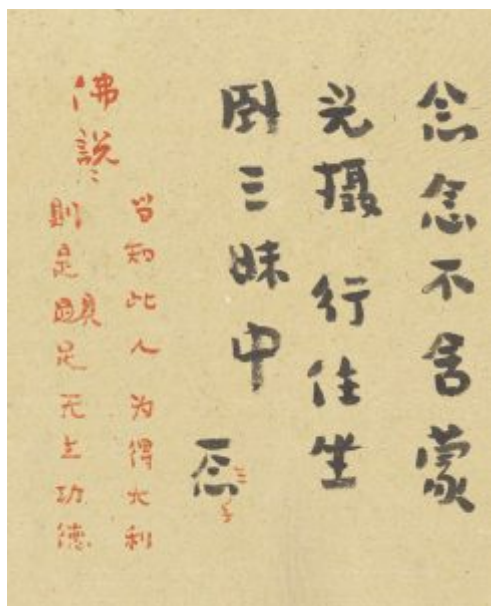 念念不舍蒙
光摄行住坐
卧三昧中
一念
佛說
当知此人为得大利
則是具足无上功德